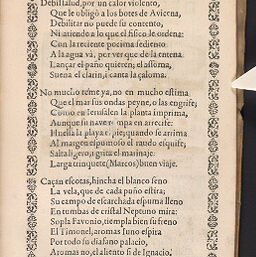 Debil salud, por un calor violento,
Que le obligò a los botes de Avicena,
Debilitar no puede su contento,
Ni atiende a lo que el fisico le ordena:
Con la reciente pocima sediento
A la agua và, por ver que de la entena
Lançar el paño quieren; el assoma,
Suena el clarin, i canta la çaloma.
No mucho teme ya, no en mucho estima
Que el mar sus ondas peyne, o las engrife;
Como en Ierusalen la planta imprima,
Aunque su nave rompa en arrecife:
Huella la playa, quando se arrima
Al margen espumoso el raudo esquife;
Salta ligero, i grita el marinaje.
Larga trinquete (Marcos) buen viaje.
Caçan escotas, hincha el blanco seno
La vela, que de cada puño estira;
Su campo de escarchada espuma lleno
En tumbas de cristal Neptuno mira:
Sopla Favonio, tiempla bien su freno
El Timonel, aromas Iuno espira
Por todo su diafano palacio,
Aromas no, el aliento si de Ignacio,